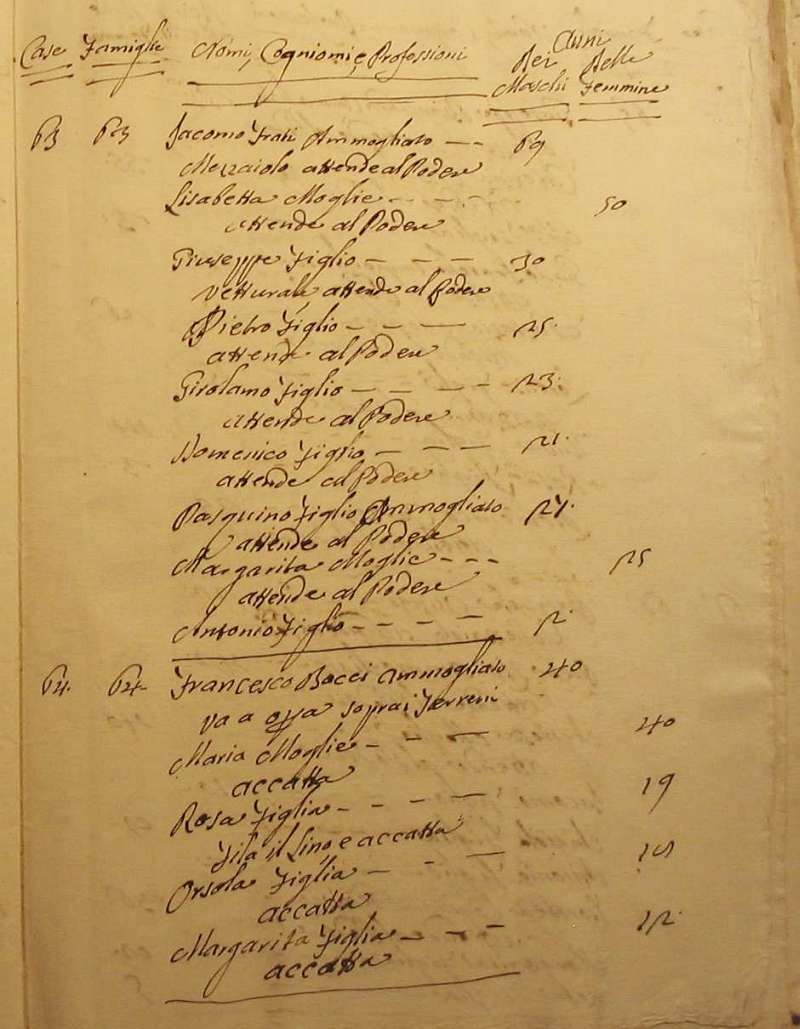 Anni
Case Famiglie Nomi, Cogniomi, e Professioni Dei Delle
Maschi Femmine
63 63 Jacomo Frati Ammogliato -- 69
Mezzaiolo attende al Podere
Lisabetta Moglie - - - - 50
attende al Podere
Giuseppe Figlio - - - 30
Vetturale, attende al Podere
Pietro Figlio - - - 25.
attende al Podere
Girolamo Figlio - - - - 23.
attende al Podere
Domenico Figlio - - - 21.
attende al Podere
Pasquino Figlio Ammogliato 27.
attende al Podere
Margarita Moglie - - - 25
attende al Podere
Antonio Figlio - - - - 2.
64. 64- Francesco Bocci Ammogliato 40
va a opra sopra i Terreni
Maria Moglie - - - - 40
accatta
Rosa Figlia - - - - 19
Fila il Lino e accatta
Orsola Figlia - - -
accatta
Margarita Figlia - - - 12.
accatta